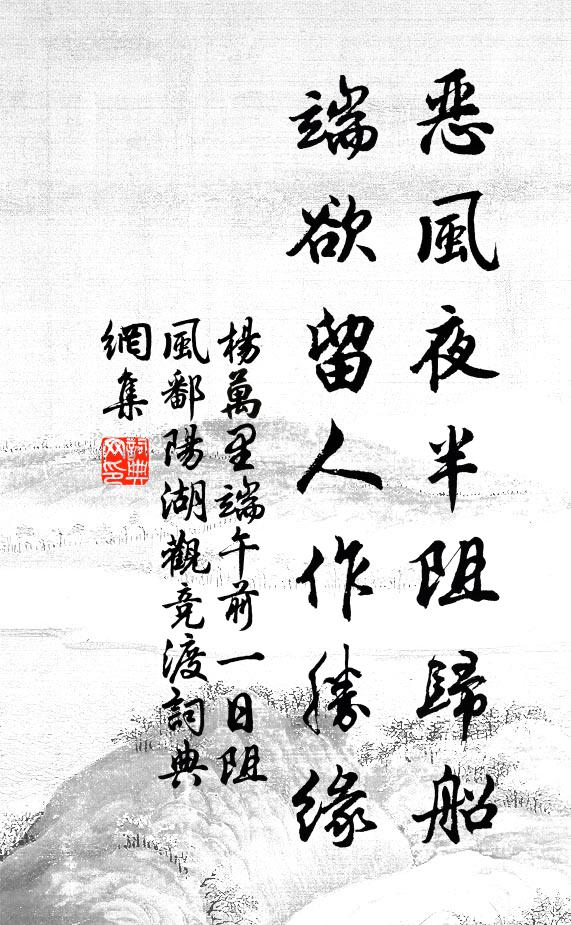 恶風夜半阻歸船
端欲留人作勝緣
楊萬里端午前一日阻
風鄱陽湖觀竞渡詞典
網集